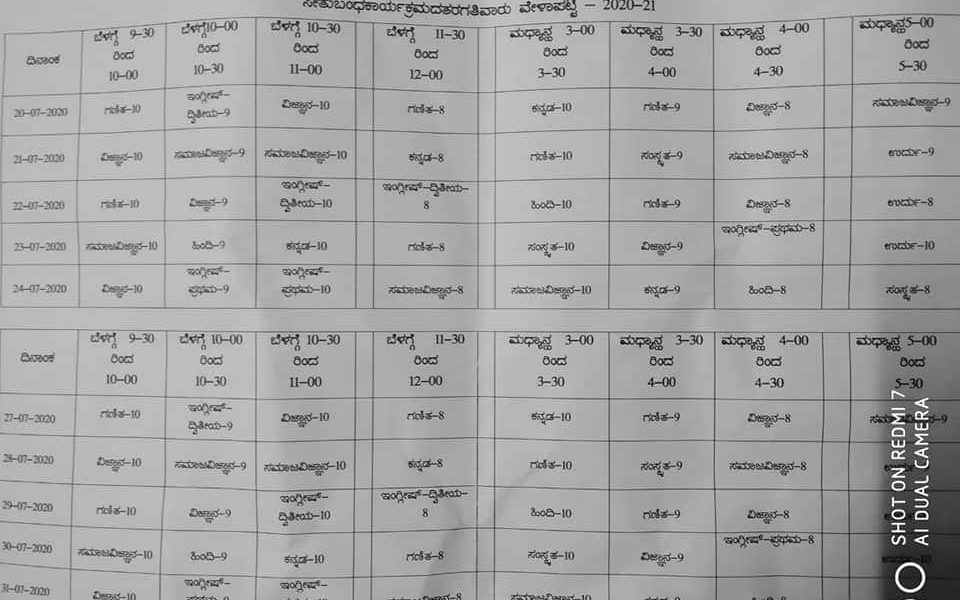 ಸೇತುಬಂಧಕಾರ್ಯಕ್ರಮದತರಗತಿವಾರು ವೇಳಾಪಟ್ಟಿ – 2020-21
ದಿನಾಂಕ ಬೆಳಗ್ಗೆ 9-30 ರಿಂದ 10-00 ಬೆಳಗ್ಗೆ10-00 ರಿಂದ 10-30 ಬೆಳಗ್ಗೆ 10-30 ರಿಂದ 11-00 ಬೆಳಗ್ಗೆ 11-30 ರಿಂದ 12-00 ಮಧ್ಯಾನ್ಹ 3-00 ರಿಂದ 3-30 ಮಧ್ಯಾನ್ಹ 3-30 ರಿಂದ 4-00 ಮಧ್ಯಾನ್ಹ 4-00 ರಿಂದ 4-30 ಮಧ್ಯಾನ್ಹ5-00 ರಿಂದ 5-30
20-07-2020 ಗಣಿತ-10 ಇಂಗ್ಲೀಷ್-ದ್ವಿತೀಯ-9 ವಿಜ್ಞಾನ-10 ಗಣಿತ-8 ಕನ್ನಡ-10 ಗಣಿತ-9 ವಿಜ್ಞಾನ-8 ಸಮಾಜವಿಜ್ಞಾನ-9
21-07-2020 ವಿಜ್ಞಾನ-10 ಸಮಾಜವಿಜ್ಞಾನ-9 ಸಮಾಜವಿಜ್ಞಾನ-10 ಕನ್ನಡ-8 ಗಣಿತ-10 ಸಂಸ್ಕೃತ-9 ಸಮಾಜವಿಜ್ಞಾನ-8 ಉರ್ದು-9
22-07-2020 ಗಣಿತ-10 ವಿಜ್ಞಾನ-9 ಇಂಗ್ಲೀಷ್-ದ್ವಿತೀಯ-10 ಇಂಗ್ಲೀಷ್-ದ್ವಿತೀಯ-8 ಹಿಂದಿ-10 ಗಣಿತ-9 ವಿಜ್ಞಾನ-8 ಉರ್ದು-8
23-07-2020 ಸಮಾಜವಿಜ್ಞಾನ-10 ಹಿಂದಿ-9 ಕನ್ನಡ-10 ಗಣಿತ-8 ಸಂಸ್ಕೃತ-10 ವಿಜ್ಞಾನ-9 ಇಂಗ್ಲೀಷ್-ಪ್ರಥಮ-8 ಉರ್ದು-10
24-07-2020 ವಿಜ್ಞಾನ-10 ಇಂಗ್ಲೀಷ್-ಪ್ರಥಮ-9 ಇಂಗ್ಲೀಷ್-ಪ್ರಥಮ-10 ಸಮಾಜವಿಜ್ಞಾನ-8 ಸಮಾಜವಿಜ್ಞಾನ-10 ಕನ್ನಡ-9 ಹಿಂದಿ-8 ಸಂಸ್ಕೃತ-8
ದಿನಾಂಕ ಬೆಳಗ್ಗೆ 9-30 ರಿಂದ 10-00 ಬೆಳಗ್ಗೆ 10-00 ರಿಂದ 10-30 ಬೆಳಗ್ಗೆ 10-30 ರಿಂದ 11-00 ಬೆಳಗ್ಗೆ 11-30 ರಿಂದ 12-00 ಮಧ್ಯಾನ್ಹ 3-00 ರಿಂದ 3-30 ಮಧ್ಯಾನ್ಹ 3-30 ರಿಂದ 4-00 ಮಧ್ಯಾನ್ಹ 4-00 ರಿಂದ 4-30 ಮಧ್ಯಾನ್ಹ 5-00 ರಿಂದ 5-30
27-07-2020 ಗಣಿತ-10 ಇಂಗ್ಲೀಷ್-ದ್ವಿತೀಯ-9 ವಿಜ್ಞಾನ-10 ಗಣಿತ-8 ಕನ್ನಡ-10 ಗಣಿತ-9 ವಿಜ್ಞಾನ-8
28-07-2020 ವಿಜ್ಞಾನ-10 ಸಮಾಜವಿಜ್ಞಾನ-9 ಸಮಾಜವಿಜ್ಞಾನ-10 ಕನ್ನಡ-8 ಗಣಿತ-10 ಸಂಸ್ಕೃತ-9 ಸಮಾಜವಿಜ್ಞಾನ-8
29-07-2020 ಗಣಿತ-10 ವಿಜ್ಞಾನ-9 ಇಂಗ್ಲೀಷ್-ದ್ವಿತೀಯ-10 ಇಂಗ್ಲೀಷ್-ದ್ವಿತೀಯ-8 ಹಿಂದಿ-10 ಗಣಿತ-9 ವಿಜ್ಞಾನ-8
30-07-2020 ಸಮಾಜವಿಜ್ಞಾನ-10 ಹಿಂದಿ-9 ಕನ್ನಡ-10 ಗಣಿತ-8 ಸಂಸ್ಕೃತ-10 ವಿಜ್ಞಾನ-9 ಇಂಗ್ಲೀಷ್-ಪ್ರಥಮ-8 ಉರ್ದು-10
31-07-2020 ವಿಜ್ಞಾನ-10 ಇಂಗ್ಲೀಷ್- ಇಂಗ್ಲೀಷ್- ಸಮಾಜವಿಜ್ಞಾನ-8
SHOT ON REDMI 7
AI DUAL CAMERA